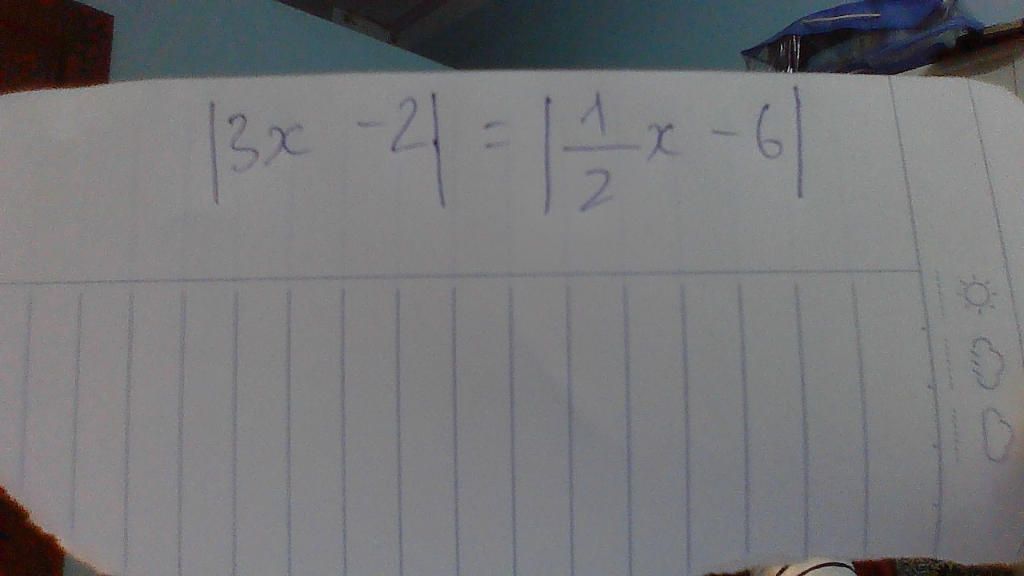 |3x - 2| = |\frac{1}{2}x - 6|